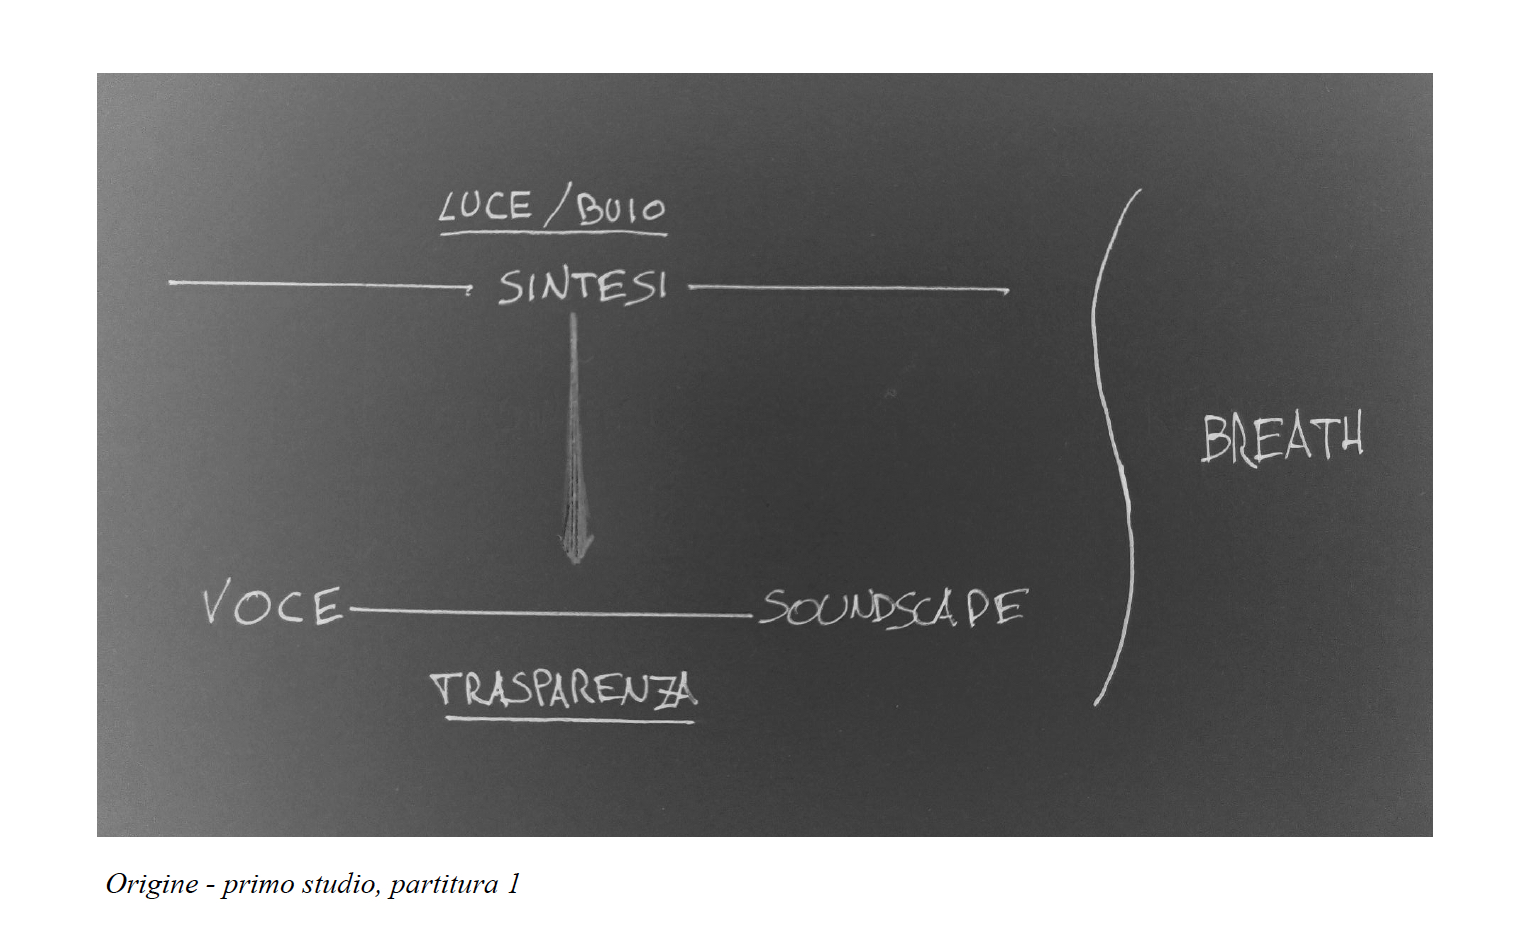 LUCE / BUIO
SINTESI
BREATH
VOCE SOUNDSCAPE
TRASPARENZA
Origine - primo studio, partitura 1